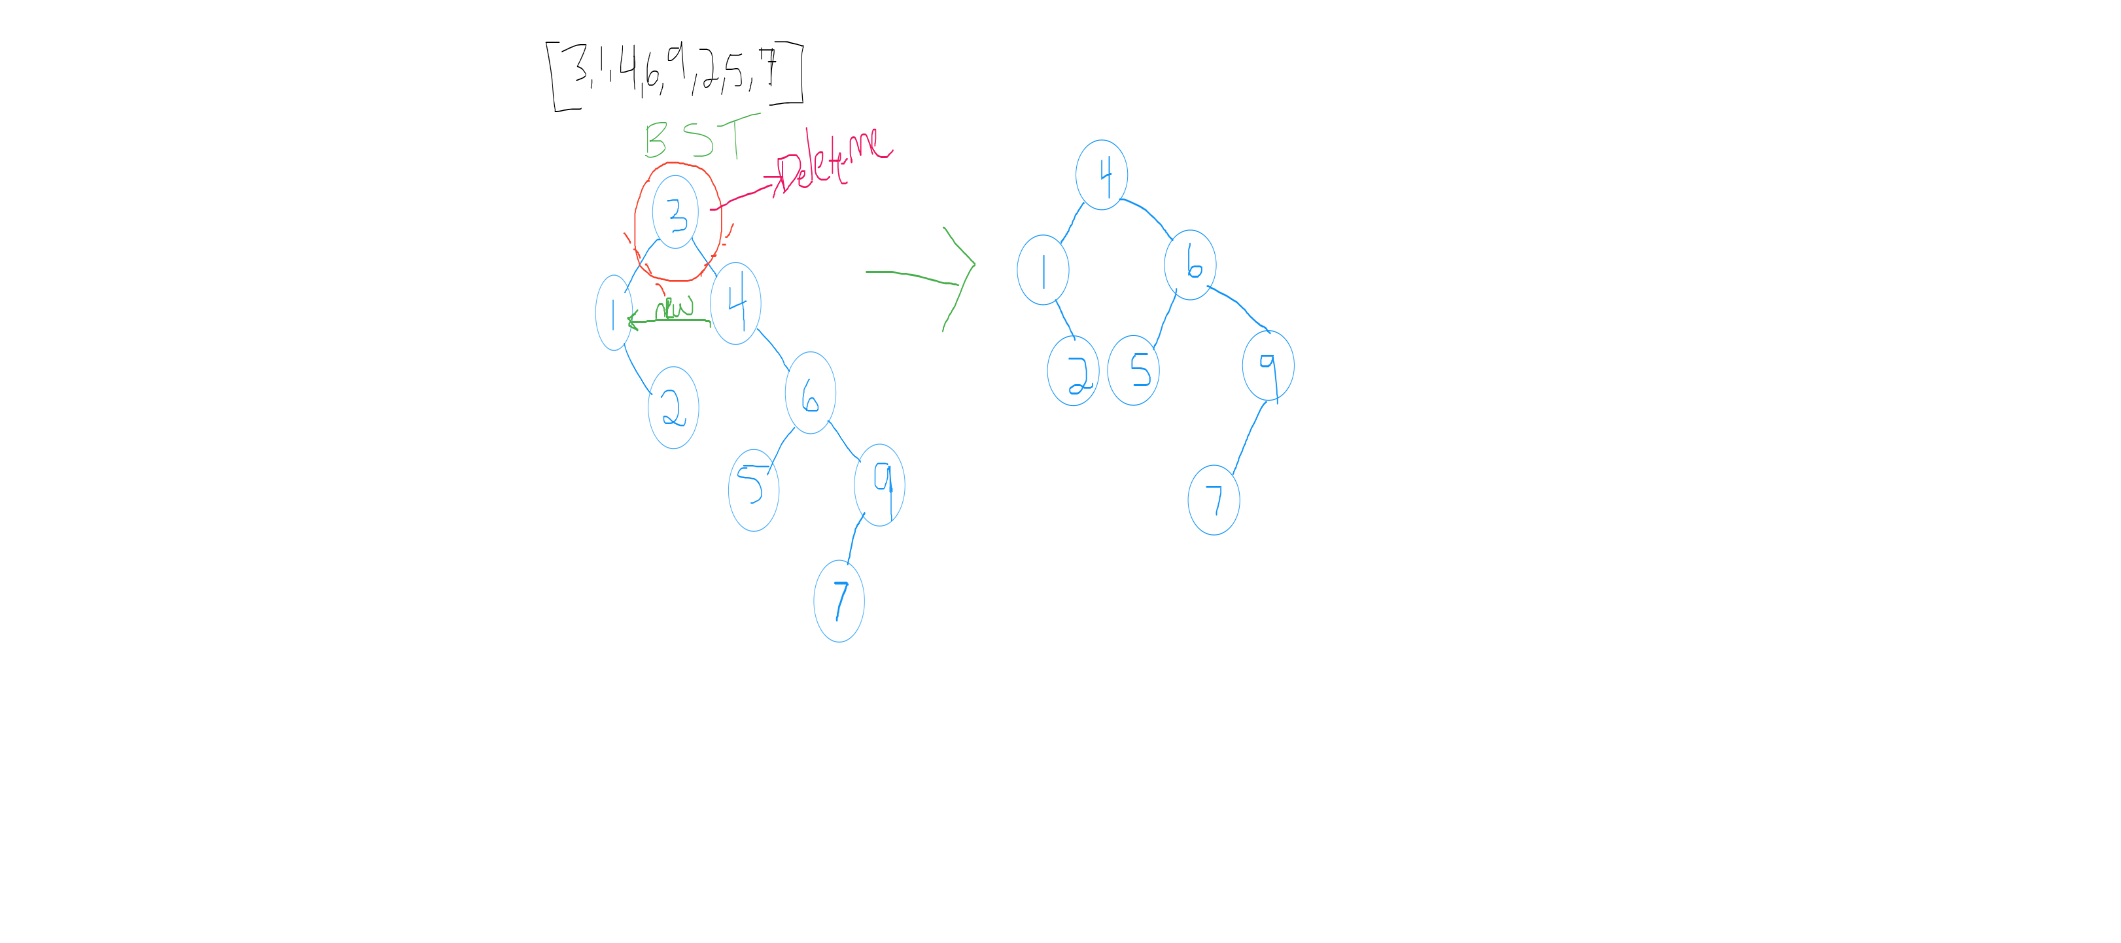 [3,1,4,6,9,2,5,7]
BST
Delete me
3
1
new
4
2
6
5
9
7
4
1
6
2
5
9
7